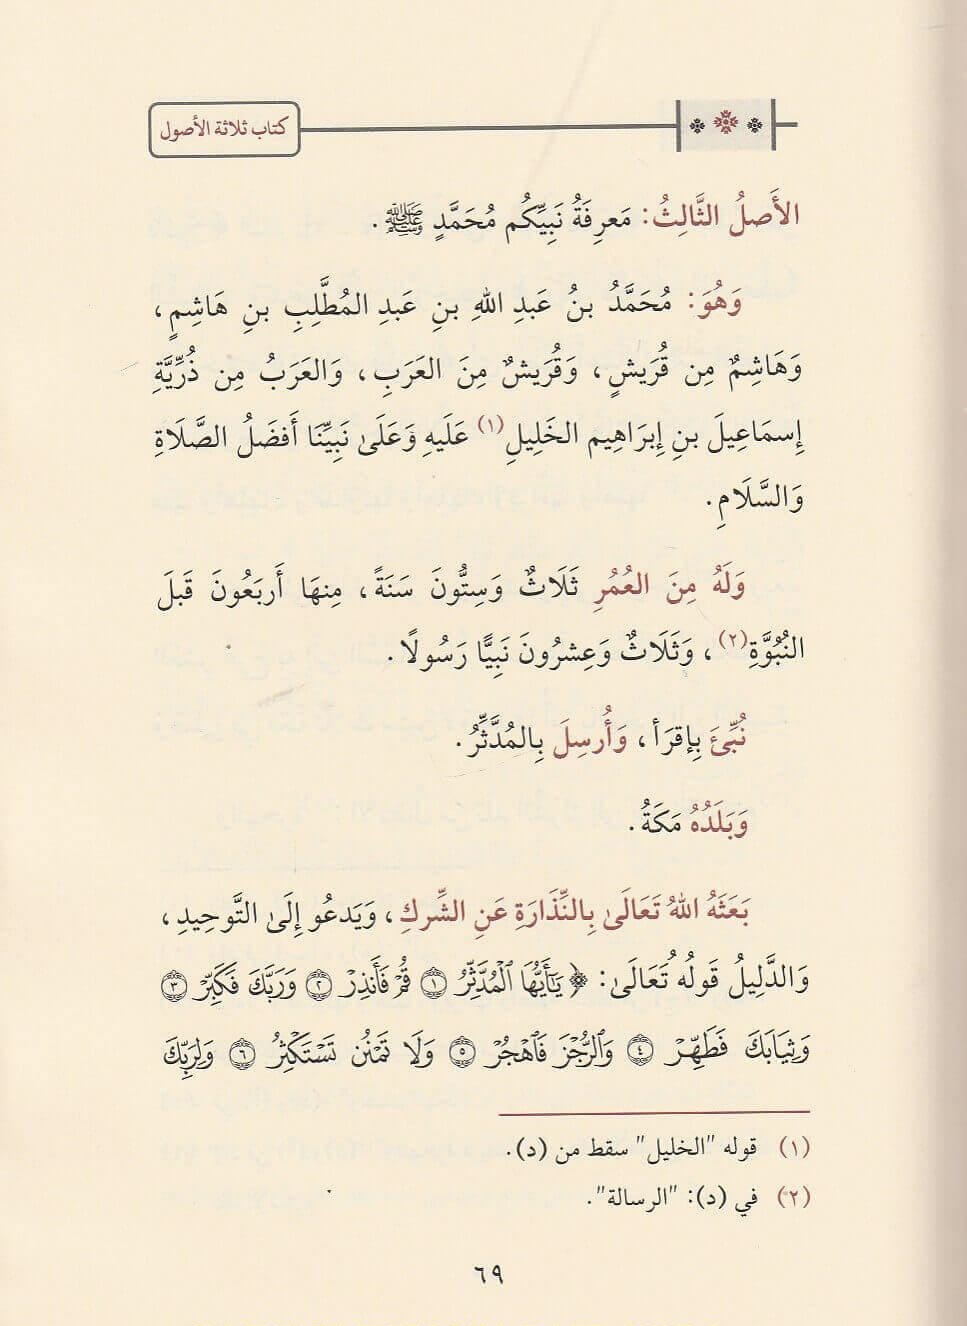 كتاب ثلاثة الأصول
الأَصلُ الثَّالِثُ: مَعرِفَةُ نَبِيِّكُم مُحَمَّدٍ ﷺ.
وَهُوَ: مُحَمَّدُ بنُ عَبدِ اللهِ بنِ عَبدِ المُطَّلِبِ بنِ هَاشِمٍ،
وَهَاشِمٌ مِن قُرَيشٍ، وَقُرَيشٌ مِنَ العَرَبِ، وَالعَرَبُ مِن ذُرِّيَّةِ
إِسمَاعِيلَ بنِ إِبرَاهِيم الخَلِيلِ(١) عَلَيهِ وَعَلَىٰ نَبِيِّنَا أَفضَلُ الصَّلَاةِ
وَالسَّلَامِ.
وَلَهُ مِنَ العُمُرِ ثَلَاثٌ وَسِتُّونَ سَنَةً، مِنهَا أَربَعُونَ قَبلَ
النُّبُوَّةِ(٢)، وَثَلَاثٌ وَعِشرُونَ نَبِيًّا رَسُولًا.
نُبِّئَ بِإقرَأ، وَأُرسِلَ بِالمُدَّثِّرُ.
وَبَلَدُهُ مَكَةُ.
بَعَثَهُ اللهُ تَعَالَىٰ بِالنِّذَارَةِ عَنِ الشِّركِ، وَيَدعُو إِلَىٰ التَّوحِيدِ،
وَالدَّلِيلُ قَولُهُ تَعَالَىٰ: ﴿يَٰٓأَيُّهَا ٱلۡمُدَّثِّرُ ١ قُمۡ فَأَنذِرۡ ٢ وَرَبَّكَ فَكَبِّرۡ ٣
وَثِيَابَكَ فَطَهِّرۡ ٤ وَٱلرُّجۡزَ فَٱهۡجُرۡ ٥ وَلَا تَمۡنُن تَسۡتَكۡثِرُ ٦ وَلِرَبِّكَ
(١) قوله "الخليل" سقط من (د).
(٢) في (د): "الرسالة".
٦٩